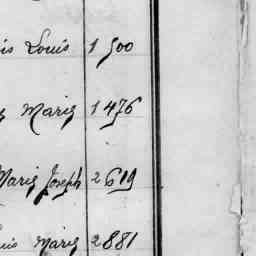 is Louis 1 500
Marie 1 476
Marie Joseph 2 619
uis Marie 2 881